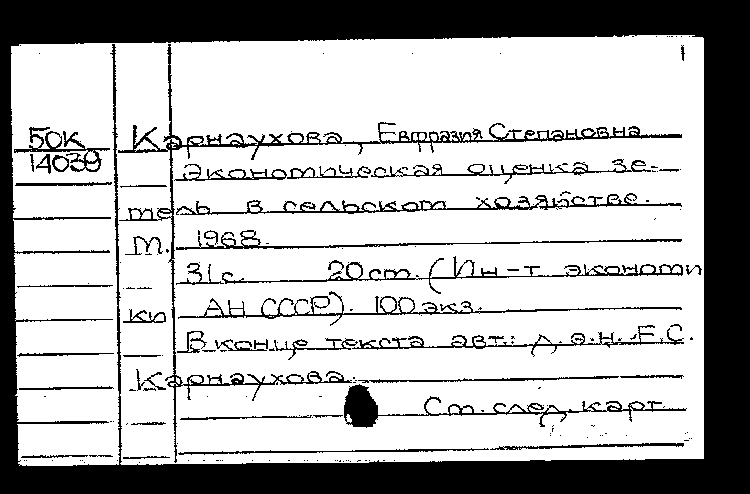 1
БОК Карнаухова, Евфразия Степановна
14039
Экономическая оценка зе-
мель в сельском хозяйстве.
М., 1968.
31 с. 20 см. (Ин-т экономи
ки АН СССР). 100 экз.
В конце текста авт.: д.э.н. Е.С.
Карнаухова.
См. след. карт